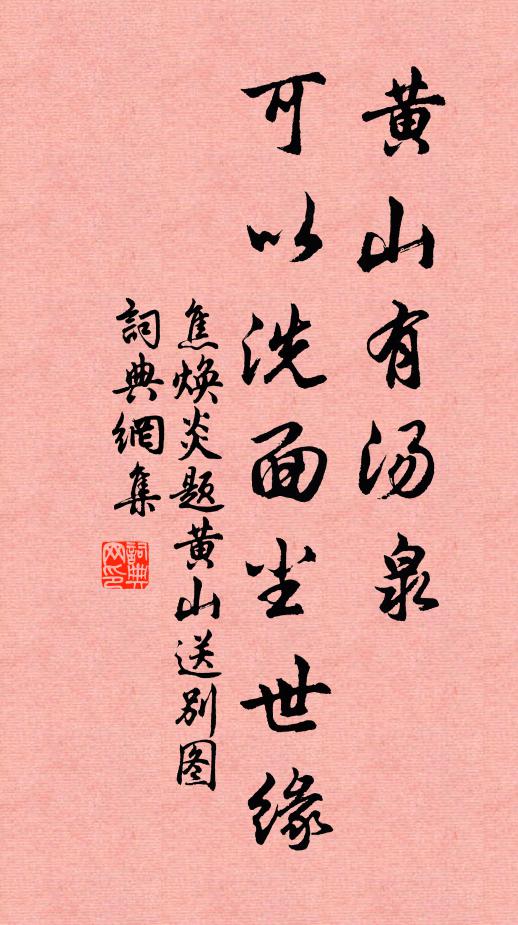 黄山有汤泉
可以洗面尘世缘
焦焕炎题黄山送别图
詞典網集
詞典网印